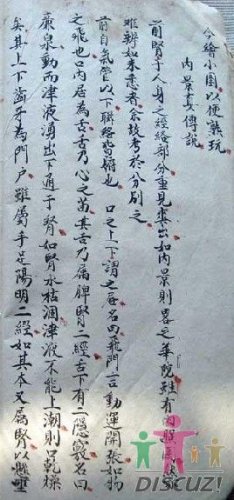 今繪小圖以便熟玩
內景真傳說
前賢于人身之經絡部分重見疊出如內景則畧之華雖有內照
辨如未悉者余故考於分別之
前自氣管以下聯絡皆臟也 口之上下謂之唇名曰飛門言動運開張如物
之飛也口內居為舌舌乃心之苗其舌乃屬脾腎二經舌下有二隱竅名曰
廉泉動而津液湧出下通于腎如腎水枯涸津液不能上潮則口乾燥
矣其上下齒牙為門戶雖屬手足陽明二經如其本又屬腎以
DISCUZ!